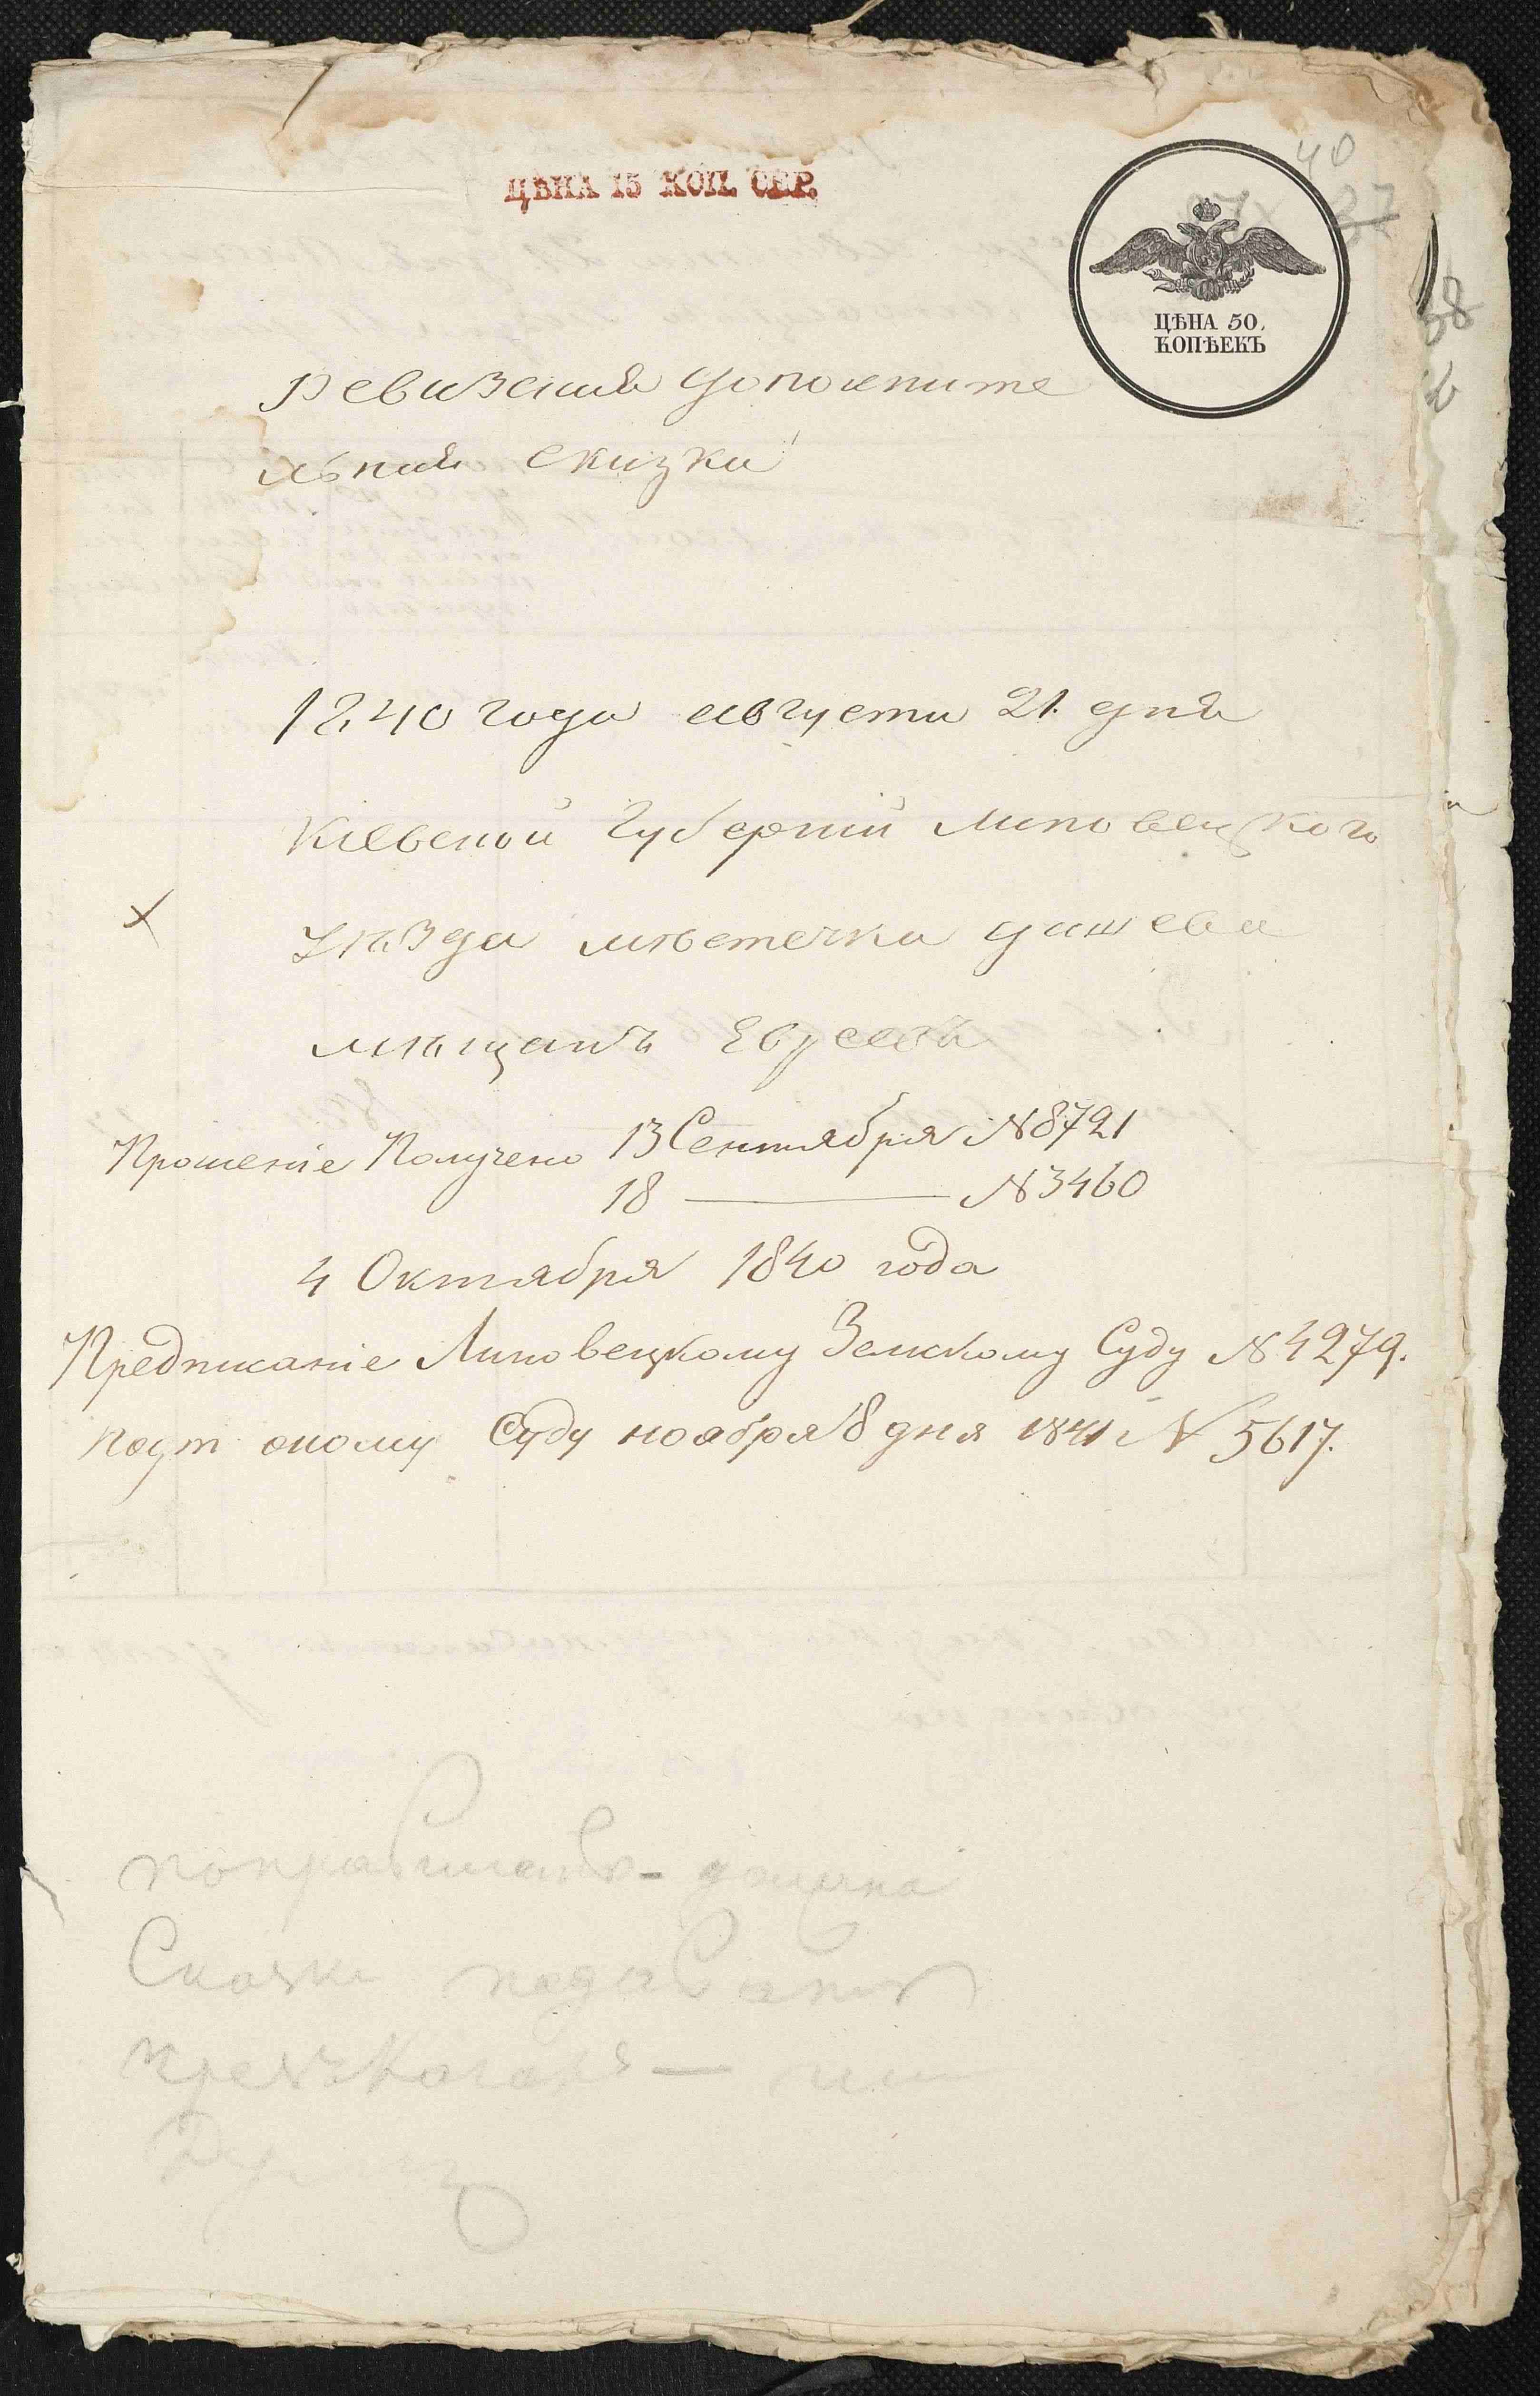 ЦѢНА 15 КОП. СЕР.
40
37
ЦѢНА 50.
КОПѢЕКЪ
38
Ревизская дополните
льная сказка
1840 года августа 21. дня
Киевской Губернии липовецкого
уѣзда мѣстечка дашева
мѣщанъ Евреевъ
Прошеніе Получено 13 Сентября № 8721
18 — № 3460
4 Октября 1840 года
Предписаніе Липовецкому Земскому Суду № 4279.
подт оному Суду ноября 8 дня 1841 № 5617.
Сказки